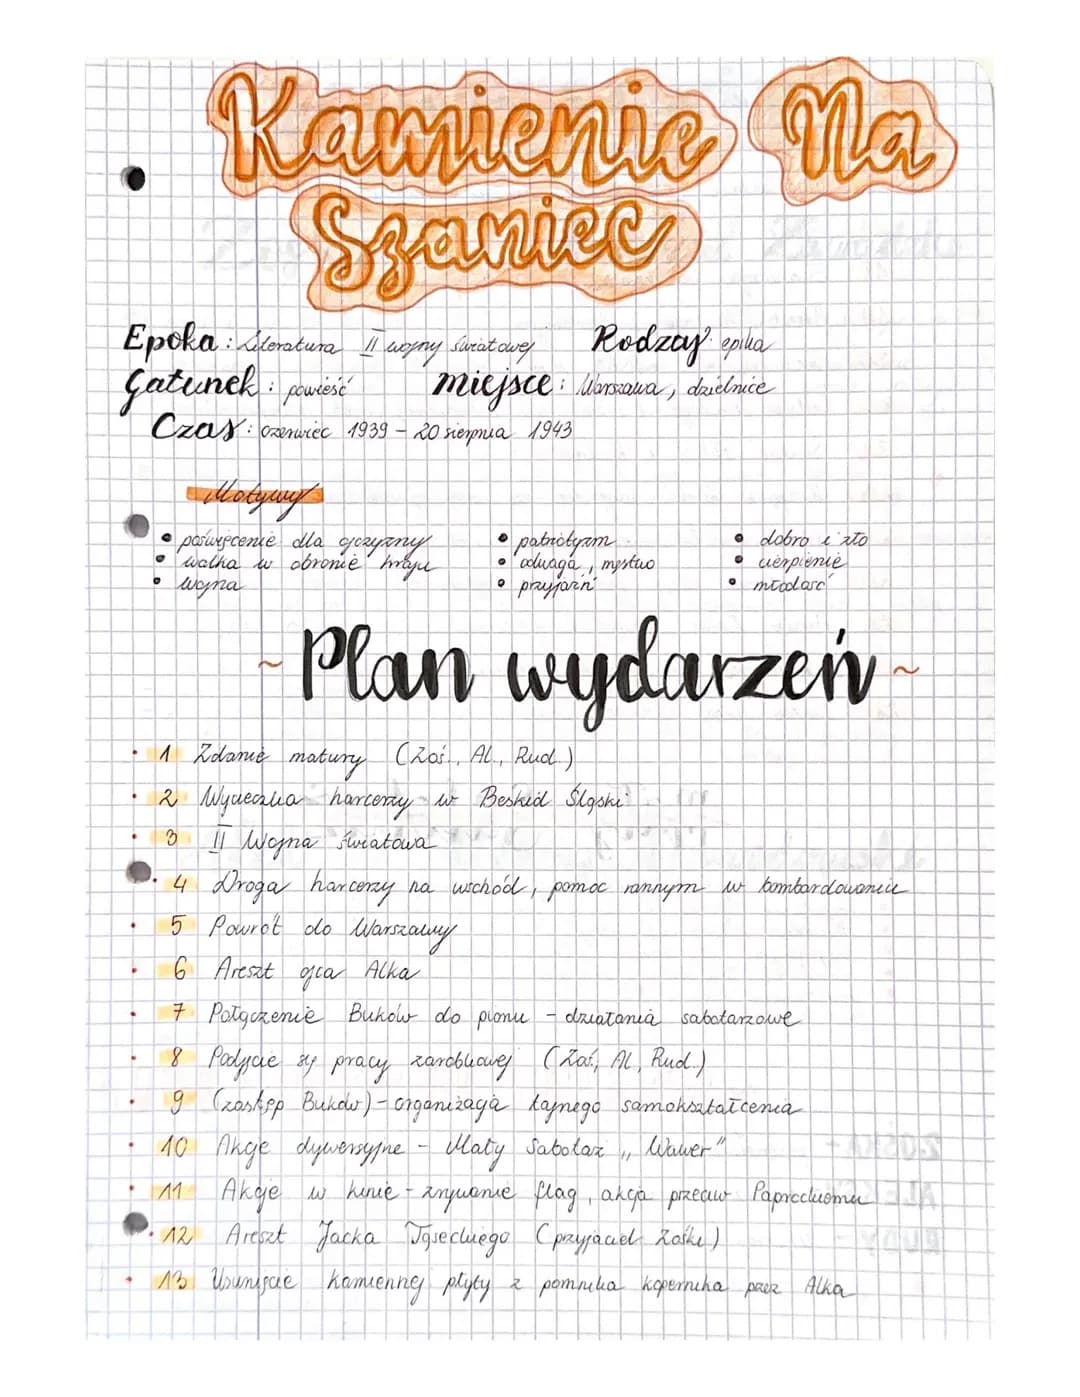 Kamienie Na
Szaniec
Epoka: Literatura II wojny światowej Rodzaj: epika
Gatunek: powieść miejsce: Warszawa, dzielnice
Czas: czerwiec 1939 – 20 sierpnia 1943
Motywy
• poświęcenie dla ojczyzny • patriotyzm • dobro i zło
• walka w obronie kraju • odwaga, męstwo • cierpienie
• wojna • przyjaźń • młodość
~ Plan wydarzeń ~
• 1 Zdanie matury (Zoś., Al., Rud.)
• 2 Wycieczka harcerzy w Beskid Śląski
• 3 II Wojna światowa
• 4 Droga harcerzy na wschód, pomoc rannym w bombardowaniu
• 5 Powrót do Warszawy
• 6 Areszt ojca Alka
• 7 Połączenie Buków do pionu – działania sabotarzowe
• 8 Podjęcie się pracy zarobkowej (Zoś, Al, Rud.)
• 9 (zastęp Buków) – organizacja tajnego samokształcenia
• 10 Akcje dywersyjne – Mały Sabotaż „Wawer"
• 11 Akcje w kinie – zrywanie flag, akcja przeciw Paprockiemu
• 12 Areszt Jacka Tabęckiego (przyjaciel Zośki)
• 13 Usunięcie kamiennej płyty z pomnika kopernika przez Alka